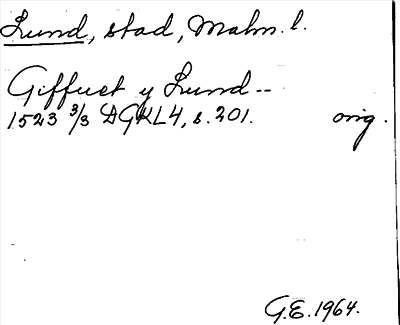 Lund, stad, Malm. l.
Giffuet y Lund --
1523 3/3 DGKL4, s. 201. orig.
G.E. 1964.